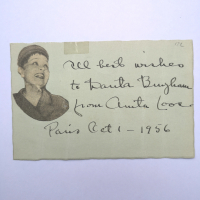 All best wishes
to Bingham
from Anita Loos
Paris Oct 1 - 1956